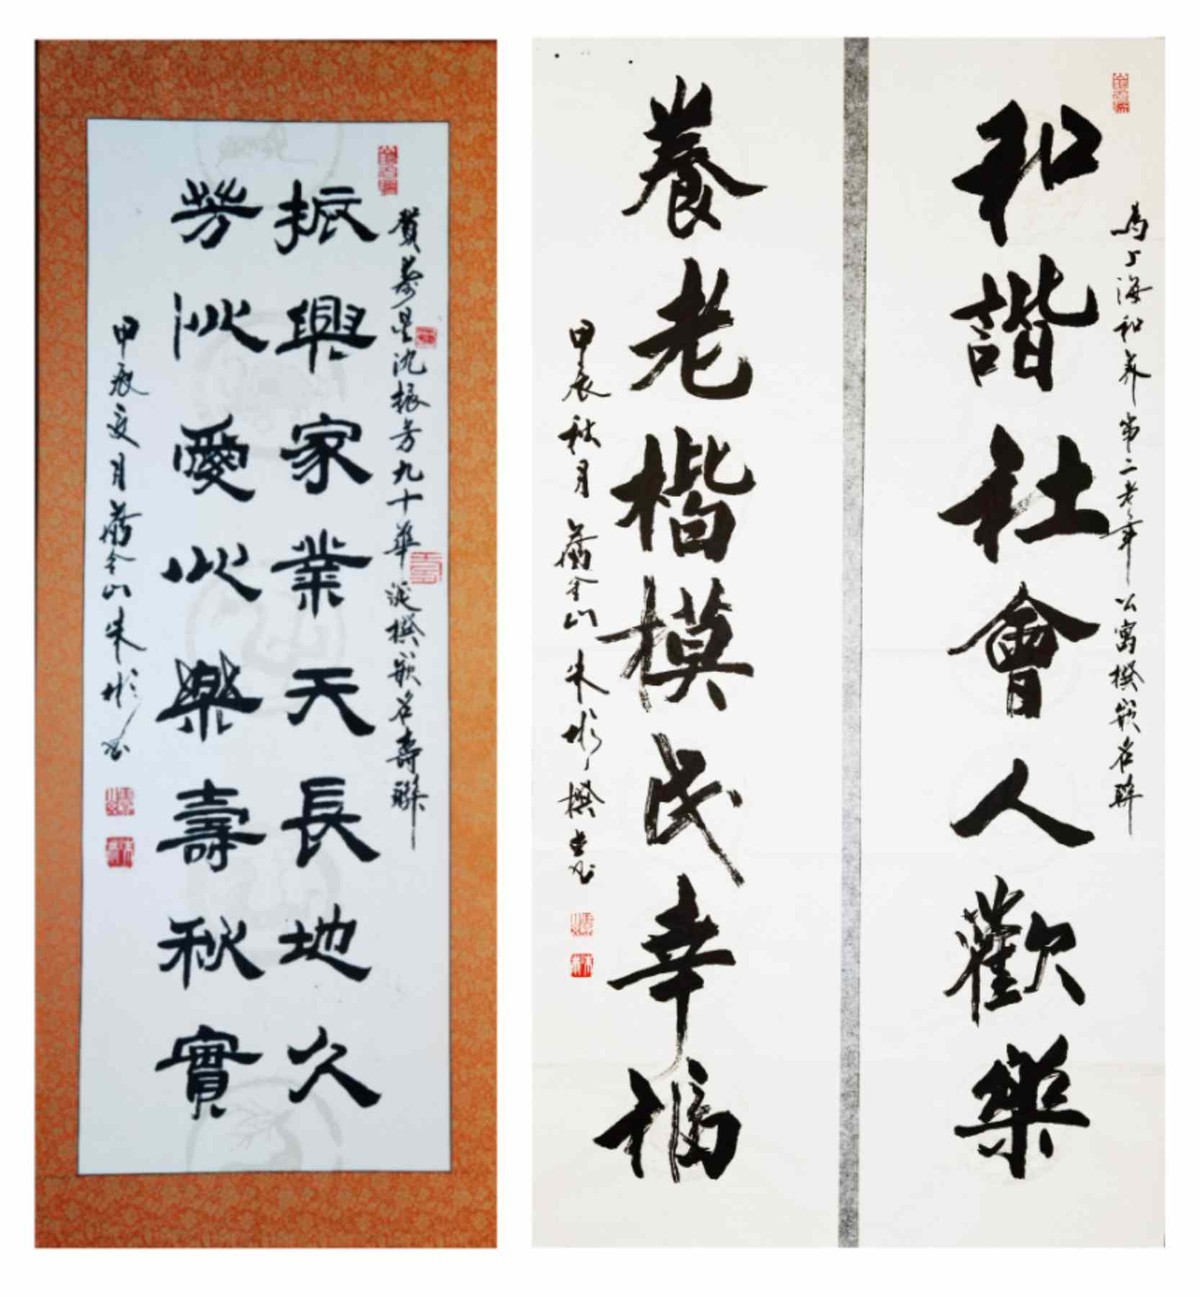 贺壽星沈振芳九十華诞撰嵌名壽聯
振興家業天長地久
芳沁愛心樂壽秋實
甲辰夏月舊金山朱彬书
為上海和养第二老年公寓撰嵌名联
和諧社會人歡樂
養老楷模民幸福
甲辰秋月舊金山朱彬撰书